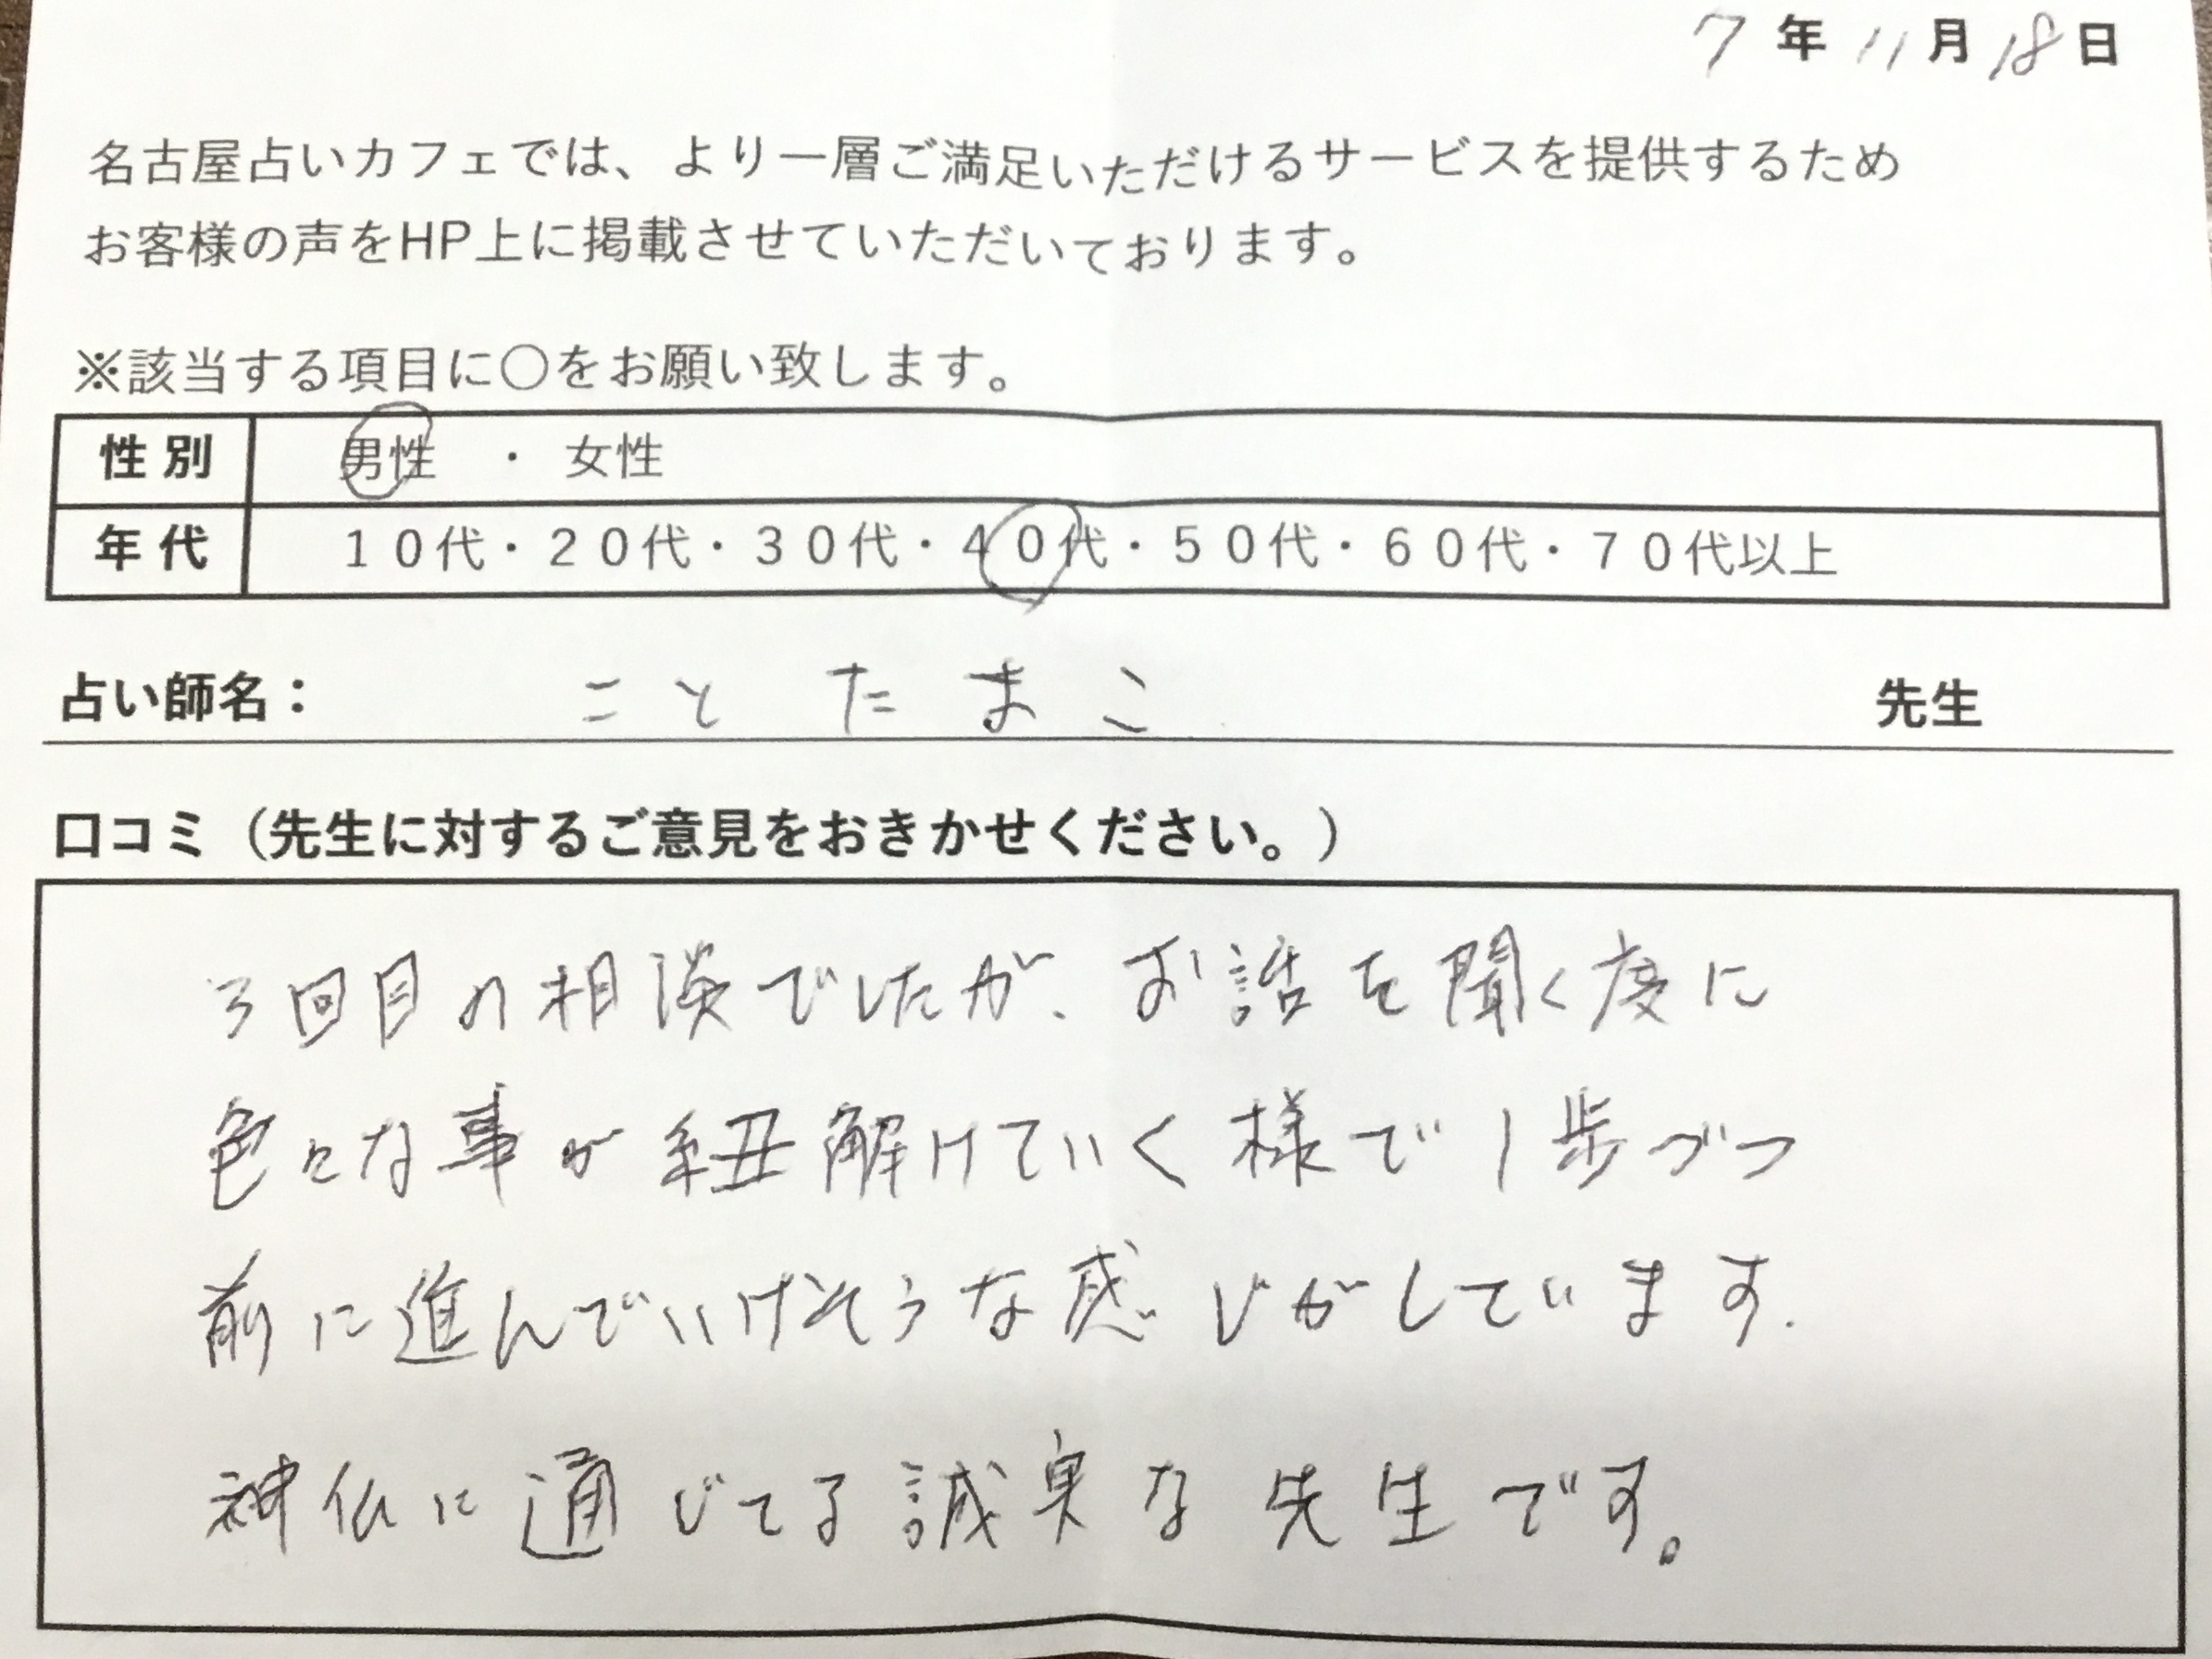 7年11月18日
名古屋占いカフェでは、より一層ご満足いただけるサービスを提供するため
お客様の声をHP上に掲載させていただいております。
※該当する項目に〇をお願い致します。
性別 男性 ・ 女性
年代 10代・20代・30代・40代・50代・60代・70代以上
占い師名： ことたまこ 先生
口コミ（先生に対するご意見をおきかせください。）
3回目の相談でしたが、お話を聞く度に
色々な事が紐解けていく様で1歩づつ
前に進んでいけそうな感じがしています.
神仏に通じてる誠実な先生です。